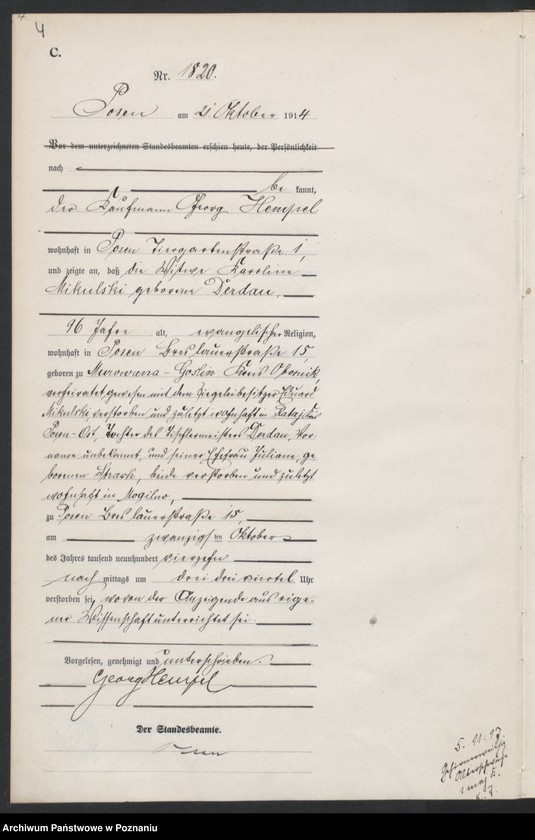 4
C.
Nr. 1820.
Posen am 21 Oktober 1914
Vor dem unterzeichneten Standesbeamten erschien heute, der Persönlichkeit
nach
be kannt,
der Kaufmann Georg Hempel
wohnhaft in Posen Tiergartenstraße 1,
und zeigte an, daß die Witwe Karoline
Mikulski geborene Derdau,
96 Jahre alt, evangelischer Religion,
wohnhaft in Posen Breslauerstraße 15
geboren zu Murowana-Goslin Kreis Obornik
verheiratet gewesen mit dem Ziegeleibesitzer Eduard
Mikulski, verstorben und zuletzt wohnhaft in
Posen-Ost, Tochter des Tischlermeisters Derdau, Vor-
name unbekannt, und seiner Ehefrau Juliane, ge-
borenen beide verstorben und zuletzt
wohnhaft in Mogilno,
zu Posen Breslauerstraße 15,
am zwanzigsten Oktober
des Jahres tausend neunhundert vierzehn
nach mittags um drei dreiviertel Uhr
verstorben sei, wovon der Anzeigende aus eige-
ner Wissenschaft unterrichtet sei.
Vorgelesen, genehmigt und unterschrieben.
Georg Hempel
Der Standesbeamte.
Archiwum Państwowe w Poznaniu